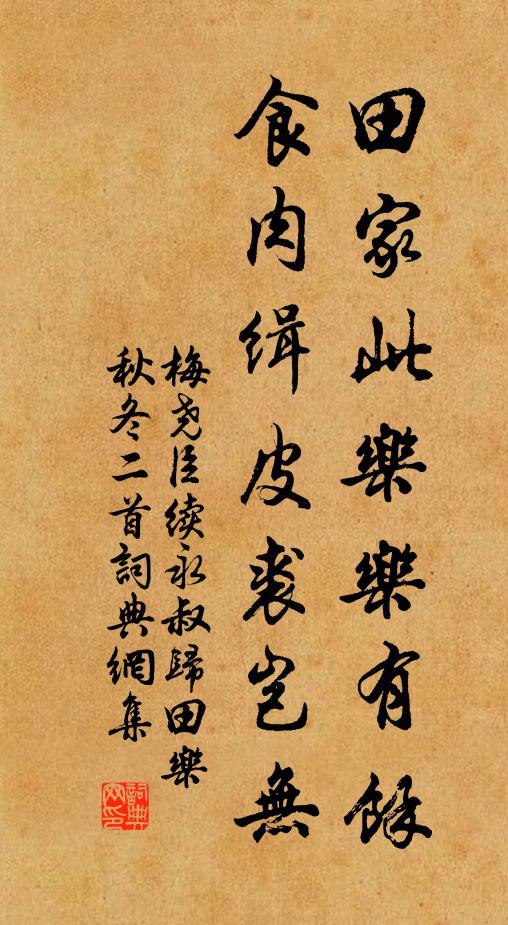 田家此樂樂有餘
食肉緝皮裘豈無
梅堯臣續永叔歸田樂
秋冬二首詞典網集
詞典
网印